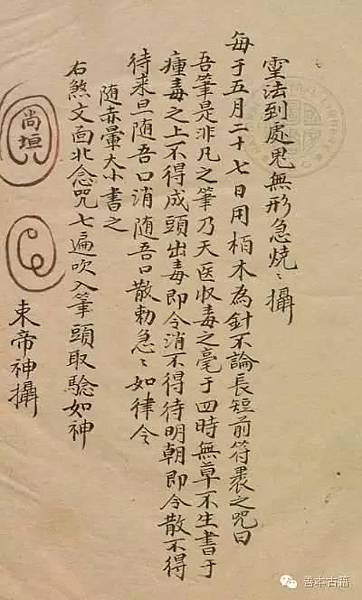 霊法到處鬼無形急燒〻攝
每于五月二十七日用栢木為針不論長短前符裹之咒曰
吾筆是非凡之筆乃天医收毒之毫于四時無草不生書于
瘇毒之上不得成頭出毒即令消不得待明朝即令散不得
待来旦隨吾口消隨吾口散勅急〻如律令
隨赤暈大小書之
右煞文面北念咒七遍吹入筆頭取驗如神
尚垣
東帝神攝
善本古籍